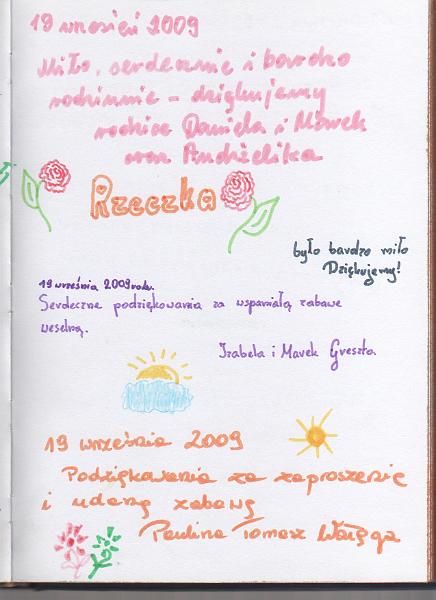 19 wrzesień 2009
Miło, serdecznie i bardzo
rodzinnie - dziękujemy
rodzice Daniela i Marek
oraz Andżelika
Rzeczka
było bardzo miło
Dziękujemy!
19 września 2009 roku.
Serdeczne podziękowania za wspaniałą zabawę
weselną.
Izabela i Marek Greszta.
19 września 2009
Podziękowania za zaproszenie
i udaną zabawę
Paulina Tomasz